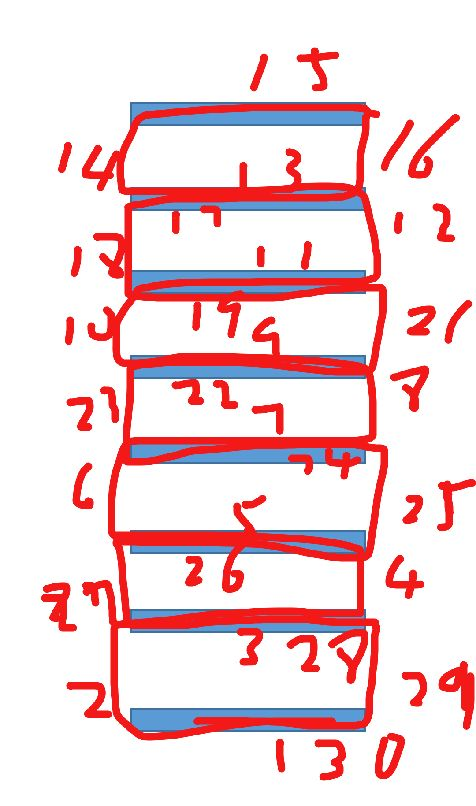 15
14 13 16
17 12
18 11
10 19 9 21
8
23 22 7
24
6 5 25
26 4
27
3 28
2 29
1 30